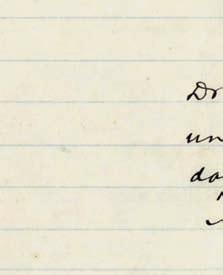 Dr
un
da